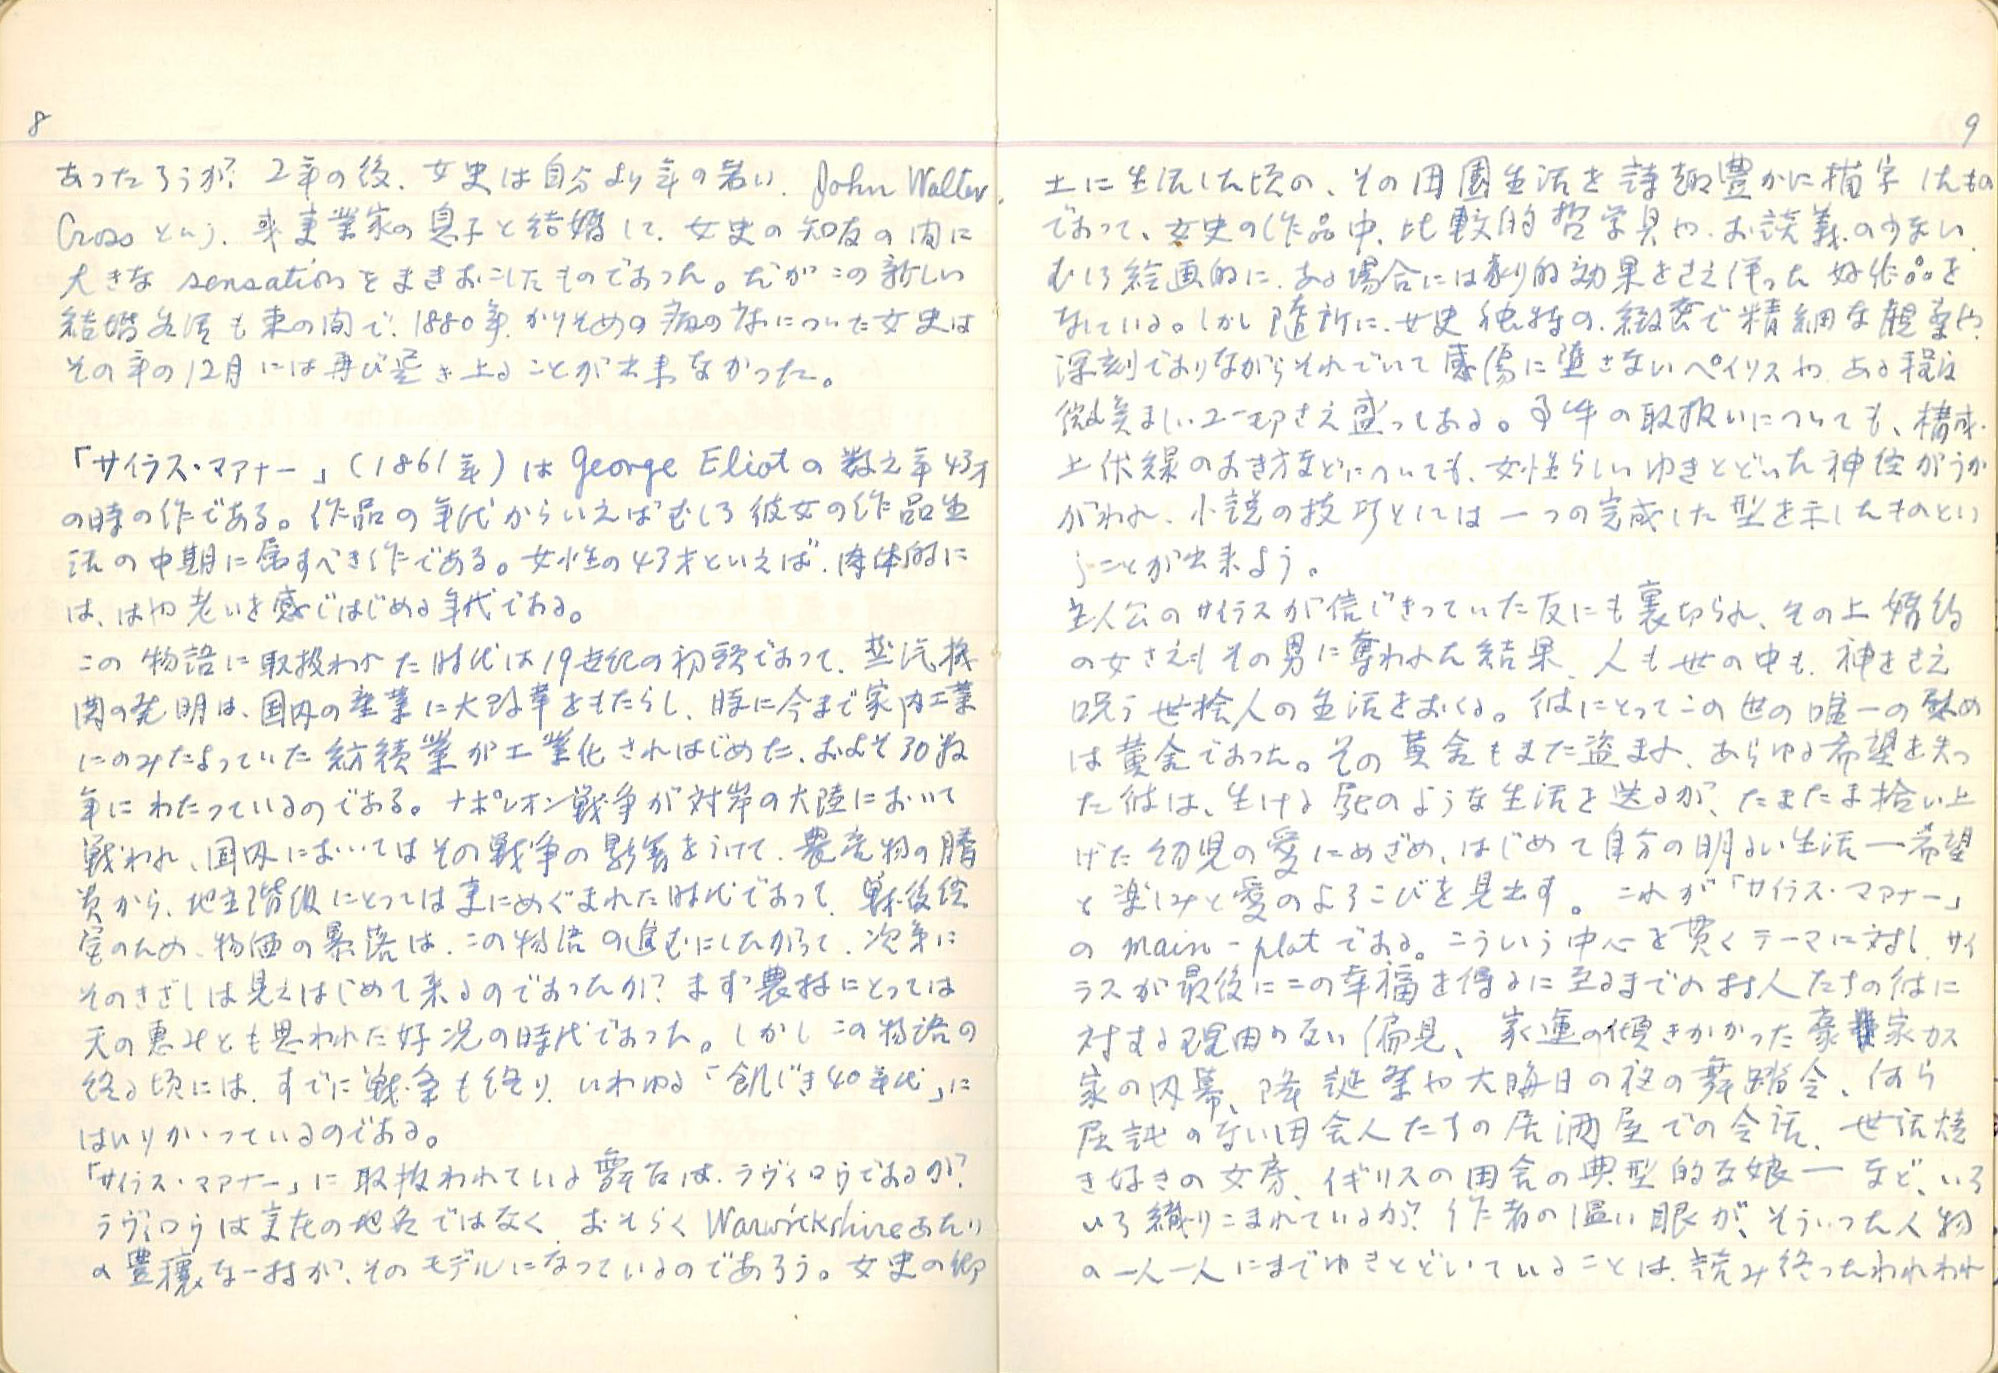 8
あったろうが? 2年の後、女史は自分より年の若い、John Walter
Crossという、或事業家の息子と結婚して、女史の知友の間に
大きなsensationをまきおこしたものであった。だがこの新しい
結婚生活も束の間で、1880年、かりそめの病の床についた女史は
その年の12月には再び起き上ることが出来なかった。
「サイラス・マアナー」(1861年)はGeorge Eliotの数え年43才
の時の作である。作品の年代からいえばむしろ彼女の作品生
活の中期に属すべき作である。女性の43才といえば、肉体的に
は、はや老いを感じはじめる年代である。
この物語に取扱われた時代は19世紀の初頭であって、蒸汽機
関の発明は、国内の産業に大改革をもたらし、時に今まで家内工業
にのみたよっていた紡績業が工業化されはじめた、およそ30数
年にわたっているのである。ナポレオン戦争が対岸の大陸において
戦われ、国内においてはその戦争の影響をうけて、農産物の騰
貴から、地主階級にとっては実にめぐまれた時代であって、戦後経
営のため、物価の暴落は、この物語の進むにしたがって、次第に
そのきざしは見えはじめて来るのであったが? まず農村にとっては
天の恵みとも思われた好況の時代であった。しかしこの物語の
終る頃には、すでに戦争も終り、いわゆる「飢じき40年代」に
はいりかかっているのである。
「サイラス・マアナー」に取扱われている舞台は、ラヴィロウであるが?
ラヴィロウは実在の地名ではなく、おそらくWarwickshireあたり
の豊穣な一村が、そのモデルになっているのであろう。女史の郷
9
土に生活した頃の、その田園生活を詩趣豊かに描写したもの
であって、女史の作品中、比較的哲学臭や、お談義の少ない、
むしろ絵画的に、ある場合には劇的効果をさえ伴った好作品を
なしている。しかし随所に、女史独特の、緻密で精細な観察や、
深刻でありながらそれでいて感傷に堕さないペイソスや、ある程度
微笑ましいユーモアさえ盛ってある。事件の取扱いについても、構成
上伏線のおき方などについても、女性らしいゆきとどいた神経がうか
がわれ、小説の技巧としては一つの完成した型を示したものとい
うことが出来よう。
主人公のサイラスが信じきっていた友にも裏切られ、その上婚約
の女さえもその男に奪われた結果、人も世の中も、神をさえ
呪う世捨人の生活をおくる。彼にとってこの世の唯一の慰め
は黄金であった。その黄金もまた盗まれ、あらゆる希望を失っ
た彼は、生ける屍のような生活を送るが、たまたま拾い上
げた幼児の愛にめざめ、はじめて自分の明るい生活—希望
と楽しみと愛のよろこびを見出す。これが「サイラス・マアナー」
のmain-plotである。こういう中心を貫くテーマに対し、サイ
ラスが最後にこの幸福を得るに至るまでの村人たちの彼に
対する理由のない偏見、家運の傾きかかった豪家カス
家の内幕、降誕祭や大晦日の夜の舞踏会、何ら
屈託のない田舎人たちの居酒屋での会話、世話焼
き好きの女房、イギリスの田舎の典型的な娘—など、いろ
いろ織りこまれているが? 作者の温い眼が、そういった人物
の一人一人にまでゆきとどいていることは、読み終ったわれわれ